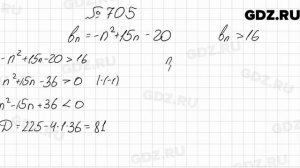 GDZ.RU
№705
bₙ = -n²+15n-20   bₙ > 16
-n²+15n-20 > 16
n?
-n²+15n-36 > 0   |·(-1)
n²-15n+36 < 0
D = 225-4·1·36 = 81